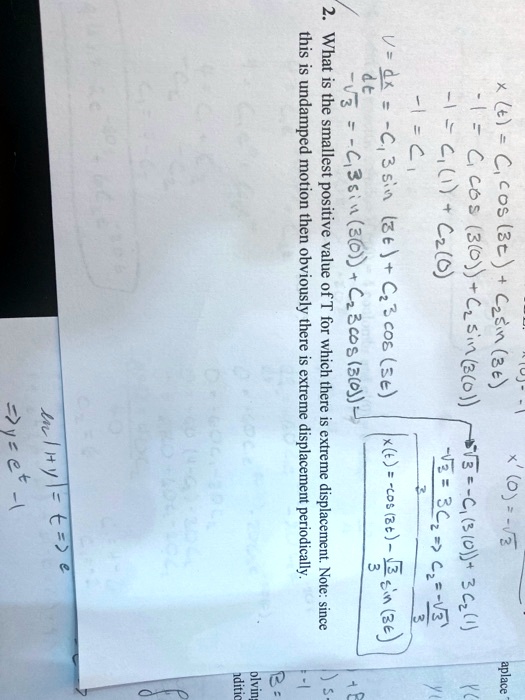 x(0) = -1    x'(0) = -√3
x(t) = C₁ cos(3t) + C₂ sin(3t)
-1 = C₁ cos(3(0)) + C₂ sin(3(0))
-1 = C₁(1) + C₂(0)
-1 = C₁
-√3 = -C₁(3(0)) + 3C₂(1)
-√3 = 3C₂ => C₂ = -√3/3
V = dx/dt = -C₁ 3 sin(3t) + C₂ 3 cos(3t)
-√3 = -C₁ 3 sin(3(0)) + C₂ 3 cos(3(0))
x(t) = -cos(3t) - √3/3 sin(3t)
2. What is the smallest positive value of T for which there is extreme displacement. Note: since
this is undamped motion then obviously there is extreme displacement periodically.
aplace
olvin
ditio
ln|1+y| = t => e
=> y = e^t - 1